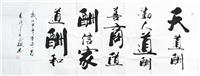 天道酬
勤人道酬
善商道
酬信家
道酬和